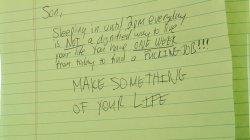 Son,
Sleeping in until 2pm everyday
is NOT a dignified way to live
your life. You have ONE WEEK
from today to find a FUCKING JOB!!!
MAKE SOMETHING
OF YOUR LIFE